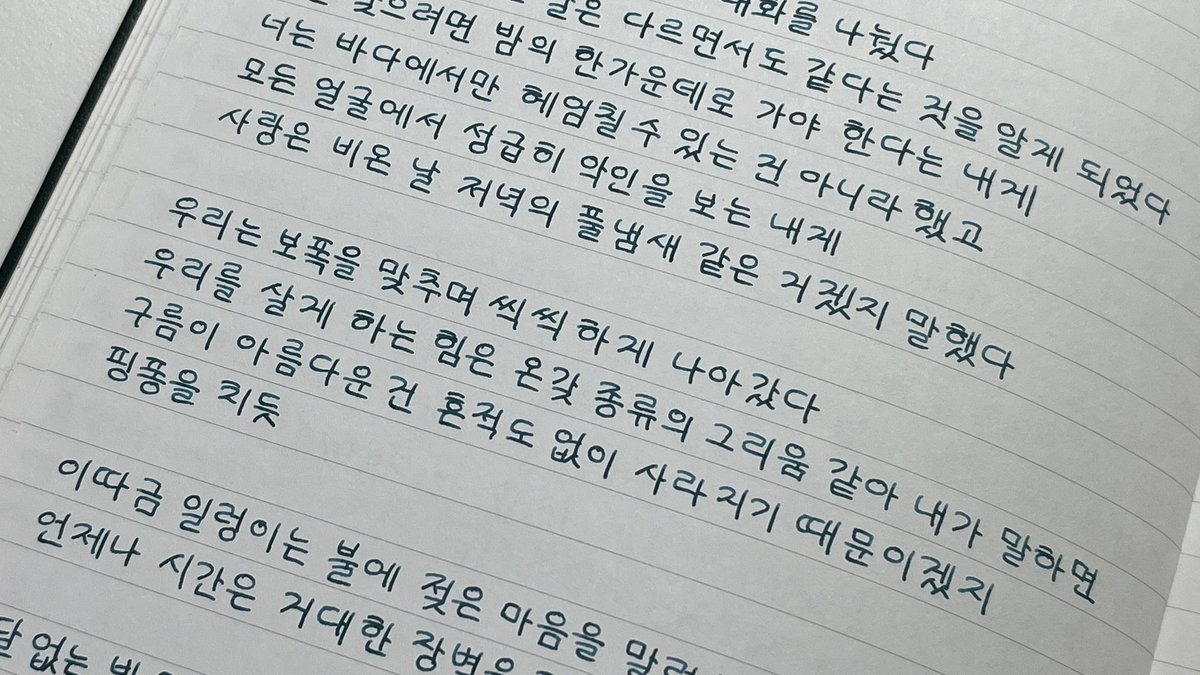 대화를 나눴다
같은 다르면서도 같다는 것을 알게 되었다
찾으려면 밤의 한가운데로 가야 한다는 내게
너는 바다에서만 헤엄칠 수 있는 건 아니라 했고
모든 얼굴에서 성급히 악인을 보는 내게
사랑은 비온 날 저녁의 풀냄새 같은 거겠지 말했다
우리는 보폭을 맞추며 씩씩하게 나아갔다
우리를 살게 하는 힘은 온갖 종류의 그리움 같아 내가 말하면
구름이 아름다운 건 흔적도 없이 사라지기 때문이겠지
핑퐁을 치듯
이따금 일렁이는 불에 젖은 마음을 말려
언제나 시간은 거대한 장벽을
없는